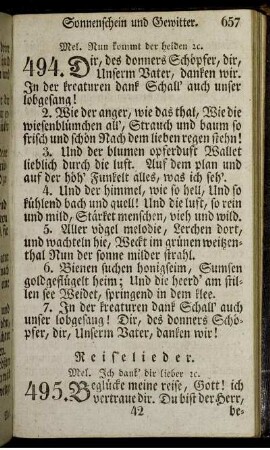 Sonnenschein und Gewitter. 657
Mel. Nun kommt der heiden ꝛc.
494. Dir, des donners Schöpfer, dir,
Unserm Vater, danken wir.
In der kreaturen dank Schall' auch unser
lobgesang!
2. Wie der anger, wie das thal, Wie die
wiesenblümchen all', Strauch und baum so
frisch und schön Nach dem lieben regen stehn!
3. Und der blumen opferduft Wallet
lieblich durch die luft. Auf dem plan und
auf der höh' Funkelt alles, was ich seh'.
4. Und der himmel, wie so hell, Und so
kühlend bach und quell! Und die luft, so rein
und mild, Stärket menschen, vieh und wild.
5. Aller vögel melodie, Lerchen dort,
und wachteln hie, Weckt im grünen weizen-
thal Nun der sonne milder strahl.
6. Bienen suchen honigseim, Sumsen
goldgeflügelt heim; Und die heerd' am stil-
len see Weidet, springend in dem klee.
7. In der kreaturen dank Schall' auch
unser lobgesang! Dir, des donners Schö-
pfer, dir, Unserm Vater, danken wir!
Reiselieder.
Mel. Ich dank' dir lieber ꝛc.
495. Beglücke meine reise, Gott! ich
vertraue dir. Du bist der Herr,
42 be-